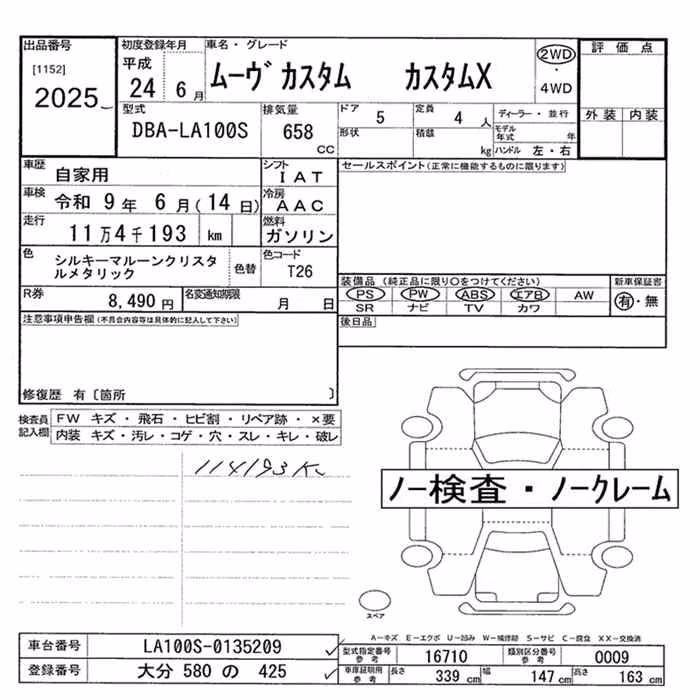 出品番号
[1152]
2025
初度登録年月
平成
24 6月
車名・グレード
ムーヴ カスタム カスタムX
2WD
・
4WD
評価点
外装 内装
型式
DBA-LA100S
排気量
658
CC
ドア 5
形状
定員 4 人
積載 kg
ディーラー・並行
モデル年式 年
ハンドル 左・右
車歴 自家用
シフト IAT
車検 令和 9年 6月(14日)
冷房 AAC
走行 11万4千193 km
燃料 ガソリン
色 シルキーマルーンクリスタ
ルメタリック
色替
色コード
T26
R券 8,490円
名変通知期限 月 日
セールスポイント(正常に機能するものに限ります)
装備品 (純正品に限り○をつけてください)
新車保証書
PS PW ABS エアB AW
有・無
SR ナビ TV カワ
後日品
注意事項申告欄(不具合内容等は具体的に記入して下さい)
修復歴 有〔箇所 〕
検査員
記入欄
FW キズ・飛石・ヒビ割・リペア跡・×要
内装 キズ・汚レ・コゲ・穴・スレ・キレ・破レ
114193K
ノー検査・ノークレーム
スペア
A-キズ E-エクボ U-凹み W-補修跡 S-サビ C-腐食 XX-交換済
車台番号 LA100S-0135209
登録番号 大分 580 の 425
型式指定番号
参考
16710
類別区分番号
参考
0009
車庫証明用
参考
長さ 339cm
幅 147cm
高さ 163cm